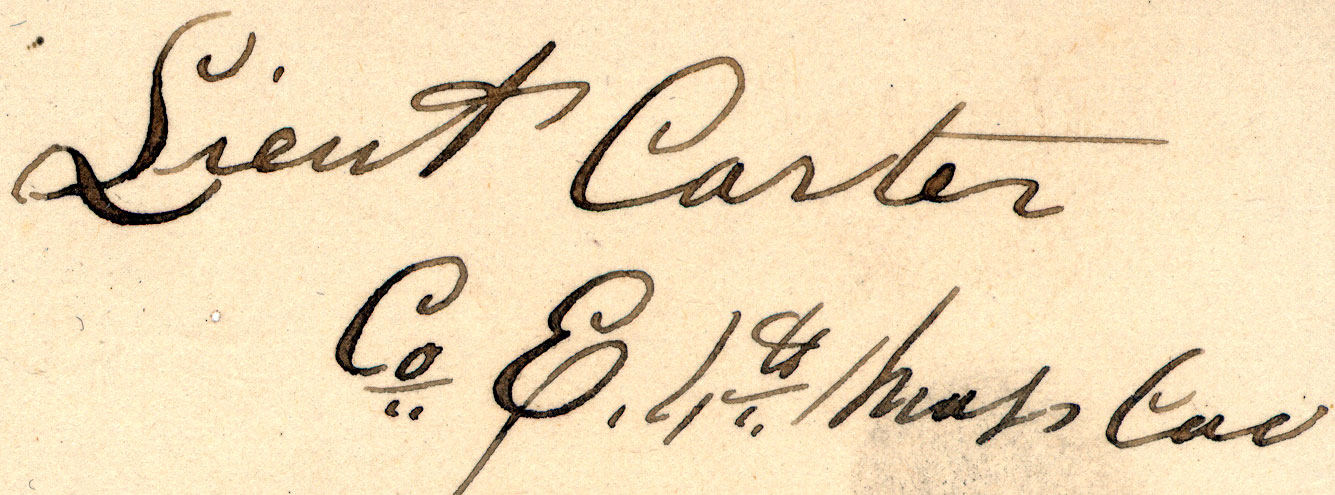 Lieut Carter
Co E. 4th Mass Cav